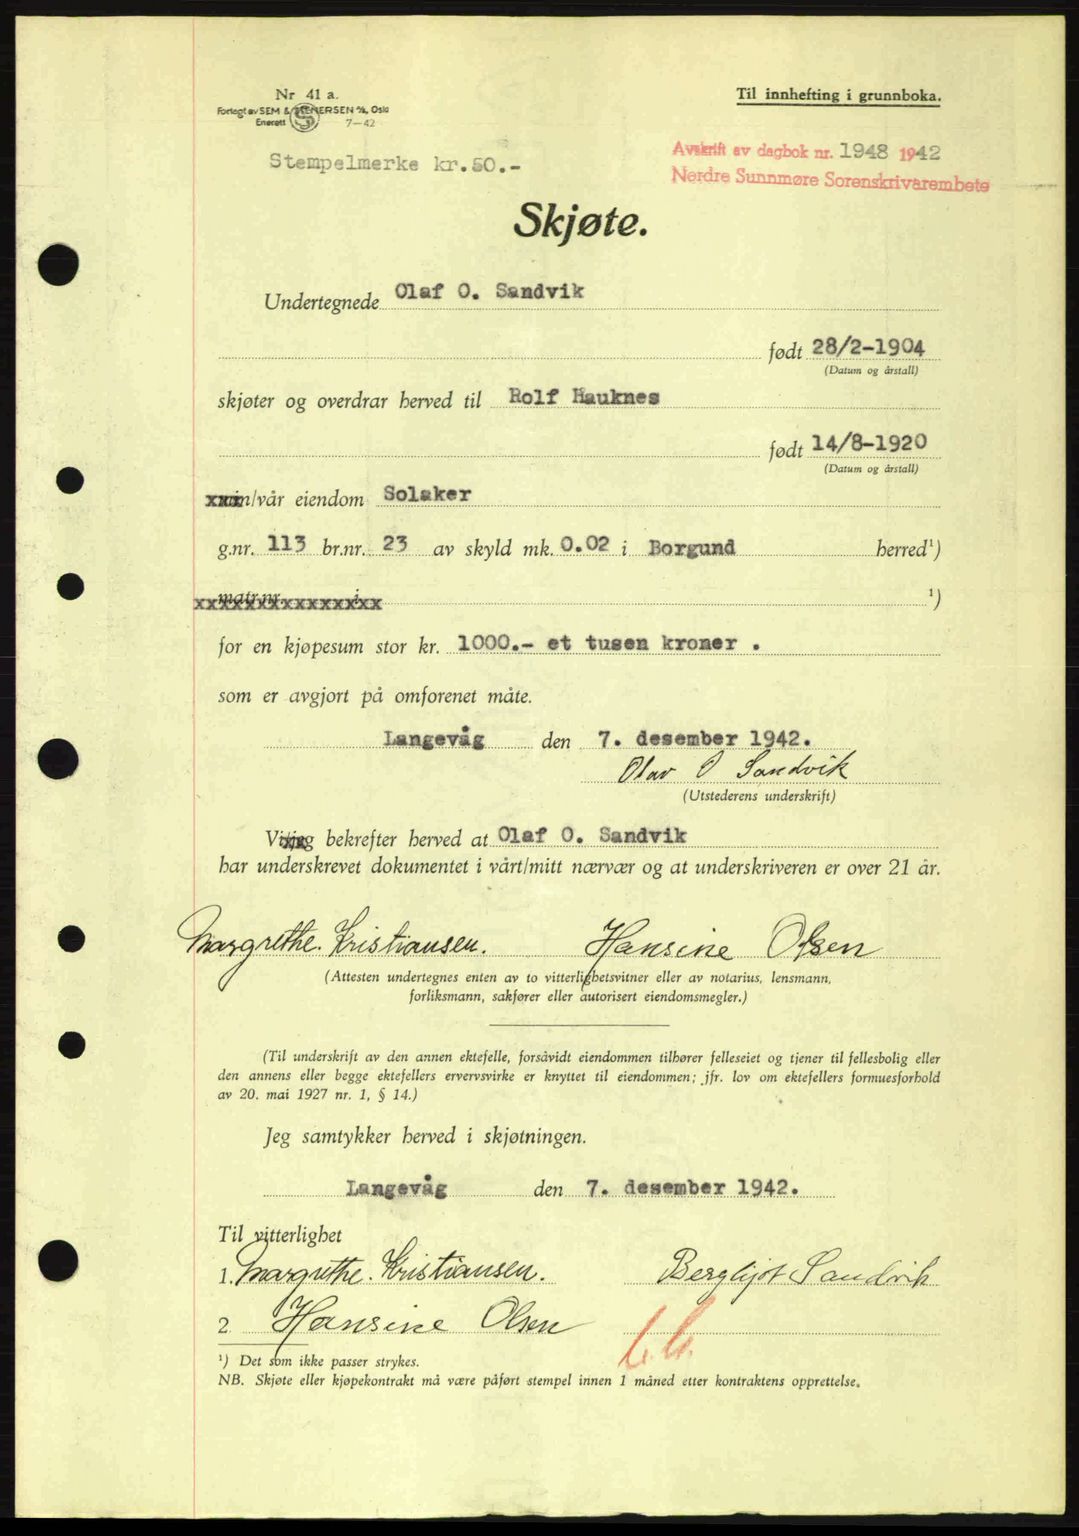 Nr 41 a.
Forlagt av SEM & STENERSEN A/S, Oslo
Enerett 7-42
Til innhefting i grunnboka.
Stempelmerke kr.50.-
Avskrift av dagbok nr. 1948 1942
Nordre Sunnmøre Sorenskrivarembete
Skjøte.
Undertegnede Olaf O. Sandvik
født 28/2-1904
(Datum og årstall)
skjøter og overdrar herved til Rolf Hauknes
født 14/8-1920
(Datum og årstall)
min/vår eiendom Solaker
g.nr. 113 br.nr. 23 av skyld mk. 0.02 i Borgund herred¹)
matr.nr. i ¹)
for en kjøpesum stor kr. 1000.- et tusen kroner .
som er avgjort på omforenet måte.
Langevåg den 7. desember 1942.
Olav O Sandvik
(Utstederens underskrift)
Vi/jeg bekrefter herved at Olaf O. Sandvik
har underskrevet dokumentet i vårt/mitt nærvær og at underskriveren er over 21 år.
Margrethe. Kristiansen. Hansine Olsen
(Attesten undertegnes enten av to vitterlighetsvitner eller av notarius, lensmann,
forliksmann, sakfører eller autorisert eiendomsmegler.)
(Til underskrift av den annen ektefelle, forsåvidt eiendommen tilhører felleseiet og tjener til fellesbolig eller
den annens eller begge ektefellers ervervsvirke er knyttet til eiendommen; jfr. lov om ektefellers formuesforhold
av 20. mai 1927 nr. 1, § 14.)
Jeg samtykker herved i skjøtningen.
Langevåg den 7. desember 1942.
Til vitterlighet
1. Margrethe. Kristiansen. Bergljot Sandvik
2 Hansine Olsen
¹) Det som ikke passer strykes.
NB. Skjøte eller kjøpekontrakt må være påført stempel innen 1 måned etter kontraktens opprettelse.